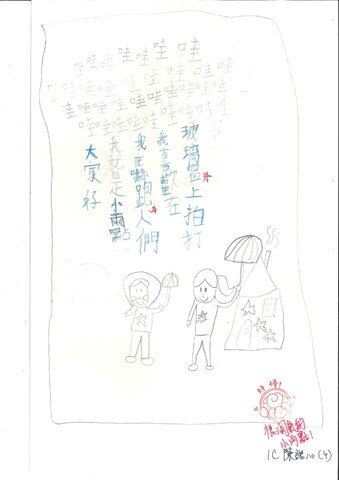 哇哇哇哇哇哇
哇哇哇哇哇哇哇哇
哇哇哇哇哇哇哇哇
哇哇哇哇哇哇哇哇
大家好
我就是小雨點
我在嚇跑人們
我喜歡在
玻璃窗上拍打
好棒!
很淘氣的
小雨點!
1C 陳 (4)